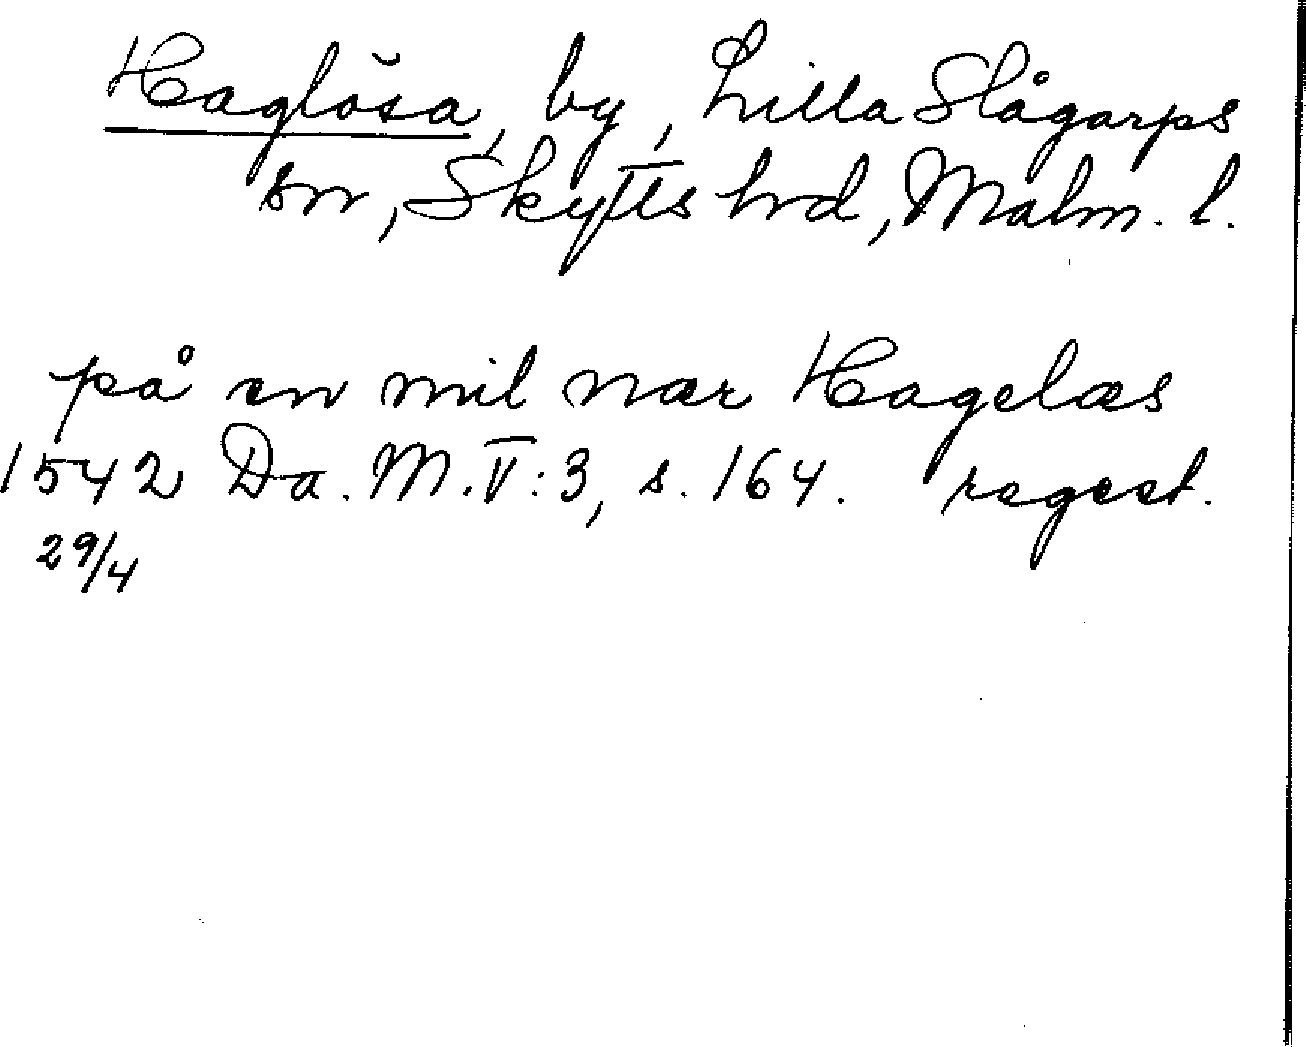 Haglösa, by, Lilla Slågarps
sn, Skytts hd, Malm. l.
på en mil nær Hagelæs
1542 Da. M. V: 3, s. 164. regest.
29/4